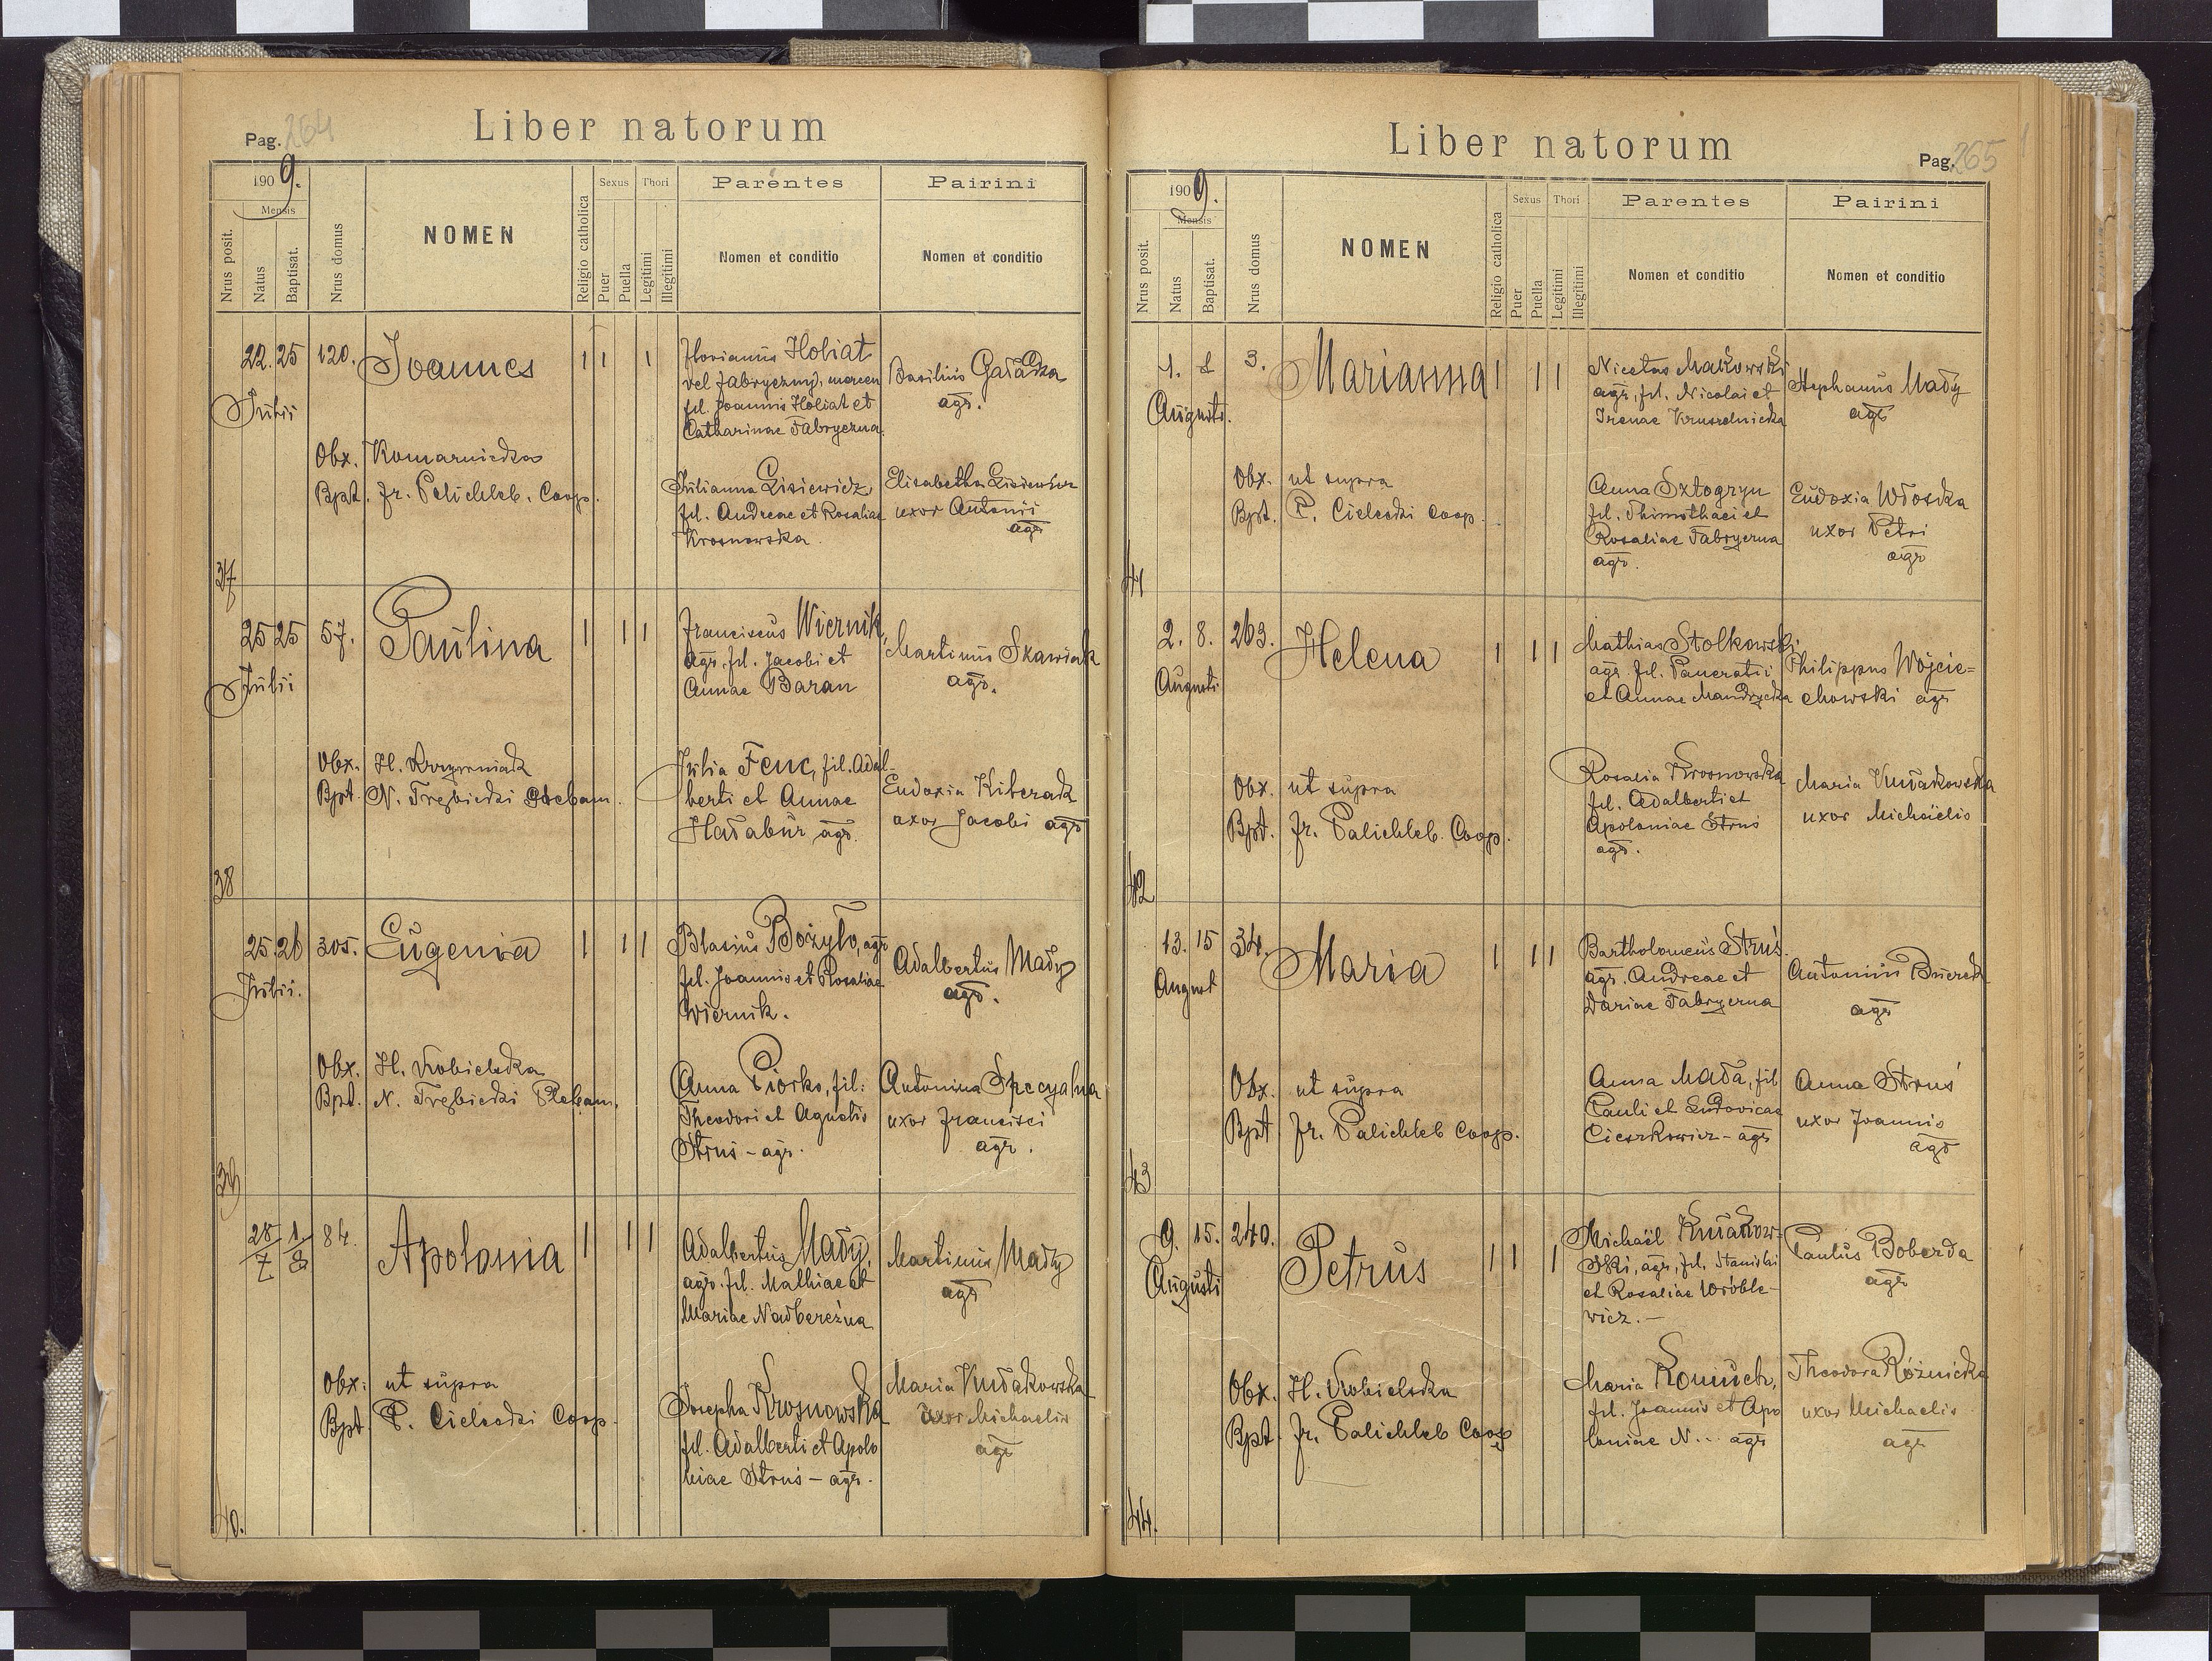 Liber natorum
Pag. 264
1909.
Mensis
Nrus posit.
Natus
Baptisat.
Nrus domus
NOMEN
Religio catholica
Sexus
Puer
Puella
Thori
Legitimi
Illegitimi
Parentes
Nomen et conditio
Pairini
Nomen et conditio
37
22. 25 120. Joannes 1 1 1
Julii
Obx. Komarnicka
Bpt. fr. Palichleb. Coop.
Florianus Holiat
vel Fabryczny, mercen
fil. Joannis Holiat et
Catharinae Fabryczna
Julianna Lisiewicz
fil. Andreae et Rosaliae
Krosnowska.
Basilius Gaładza
agr.
Elisabetha Lisiewicz
uxor Antonii
agr
38
25 25 57. Paulina 1 1 1
Julii
Obx. H.
Bpt. N. Trębicki
Franciscus Wiernik,
agr. fil. Jacobi et
Annae Baran
Julia Fenc, fil. Adal-
berti et Annae
Hałabur agr.
Martinus Skawiak
agr.
Eudoxia
uxor Jacobi agr
39
25. 26 305. Eugenia 1 1 1
Julii.
Obx. H. Kobielska
Bpt. N. Trębicki
Blasius Bożyło, agr
fil. Joannis et Rosaliae
Wiernik.
Anna Piorko, fil:
Theodori et Agnetis
Struś - agr.
Adalbertus Mady
agr.
Antonina
uxor Francisci
agr.
40.
28/7 1./8 84. Apolonia 1 1 1
Obx: ut supra
Bpt P. Cielecki Coop.
Adalbertus Mady,
agr. fil. Mathiae et
Mariae Nadbereżna
Josepha Krosnowska
fil. Adalberti et Apolo
niae Struś - agr.
Martinus Mady
agr
Maria Kmiakowska
uxor Michaelis
agr
Liber natorum
Pag. 265
1909.
Mensis
Nrus posit.
Natus
Baptisat.
Nrus domus
NOMEN
Religio catholica
Sexus
Puer
Puella
Thori
Legitimi
Illegitimi
Parentes
Nomen et conditio
Pairini
Nomen et conditio
41
1. 3. Marianna 1 1 1
Augusti.
Obx. ut supra
Bpt. P. Cielecki Coop.
Nicetas Makowski
agr, fil. Nicolai et
Irenae Kruszelnicka
Anna Sztogryn
fil. Thimothaei et
Rosaliae Fabryczna
agr.
Stephanus Mady
agr
Eudoxia Włoska
uxor Petri
agr
42
2. 8. 263. Helena 1 1 1
Augusti
Obx. ut supra
Bpt. fr. Palichleb. Coop.
Mathias Stolkowski
agr. fil. Pancratii
et Annae Mandzycka
Rosalia Krosnowska
fil. Adalberti et
Apoloniae Struś
agr.
Philippus Wojcie=
chowski agr
Maria Kmiakowska
uxor Michaëlis
43
13. 15 34. Maria 1 1 1
August
Obx. ut supra
Bpt fr. Palichleb Coop.
Bartholomeus Struś.
agr. Andreae et
Dariae Fabryczna
Anna Mada, fil
Pauli et Ludovicae
Cieszkowicz - agr
Antonius
agr
Anna Struś
uxor Joannis
agr
44.
9. 15. 240. Petrus 1 1 1
Augusti
Obx. H. Kobielska
Bpt. fr. Palichleb Coop
Michaël Kmiakow-
ski, agr, fil. Stanislai
et Rosaliae Wróble-
wicz. -
Maria Romuch,
fil. Joannis et Apo
loniae N... agr
Paulus Boberda
agr
Theodora Różnicka
uxor Michaelis
agr